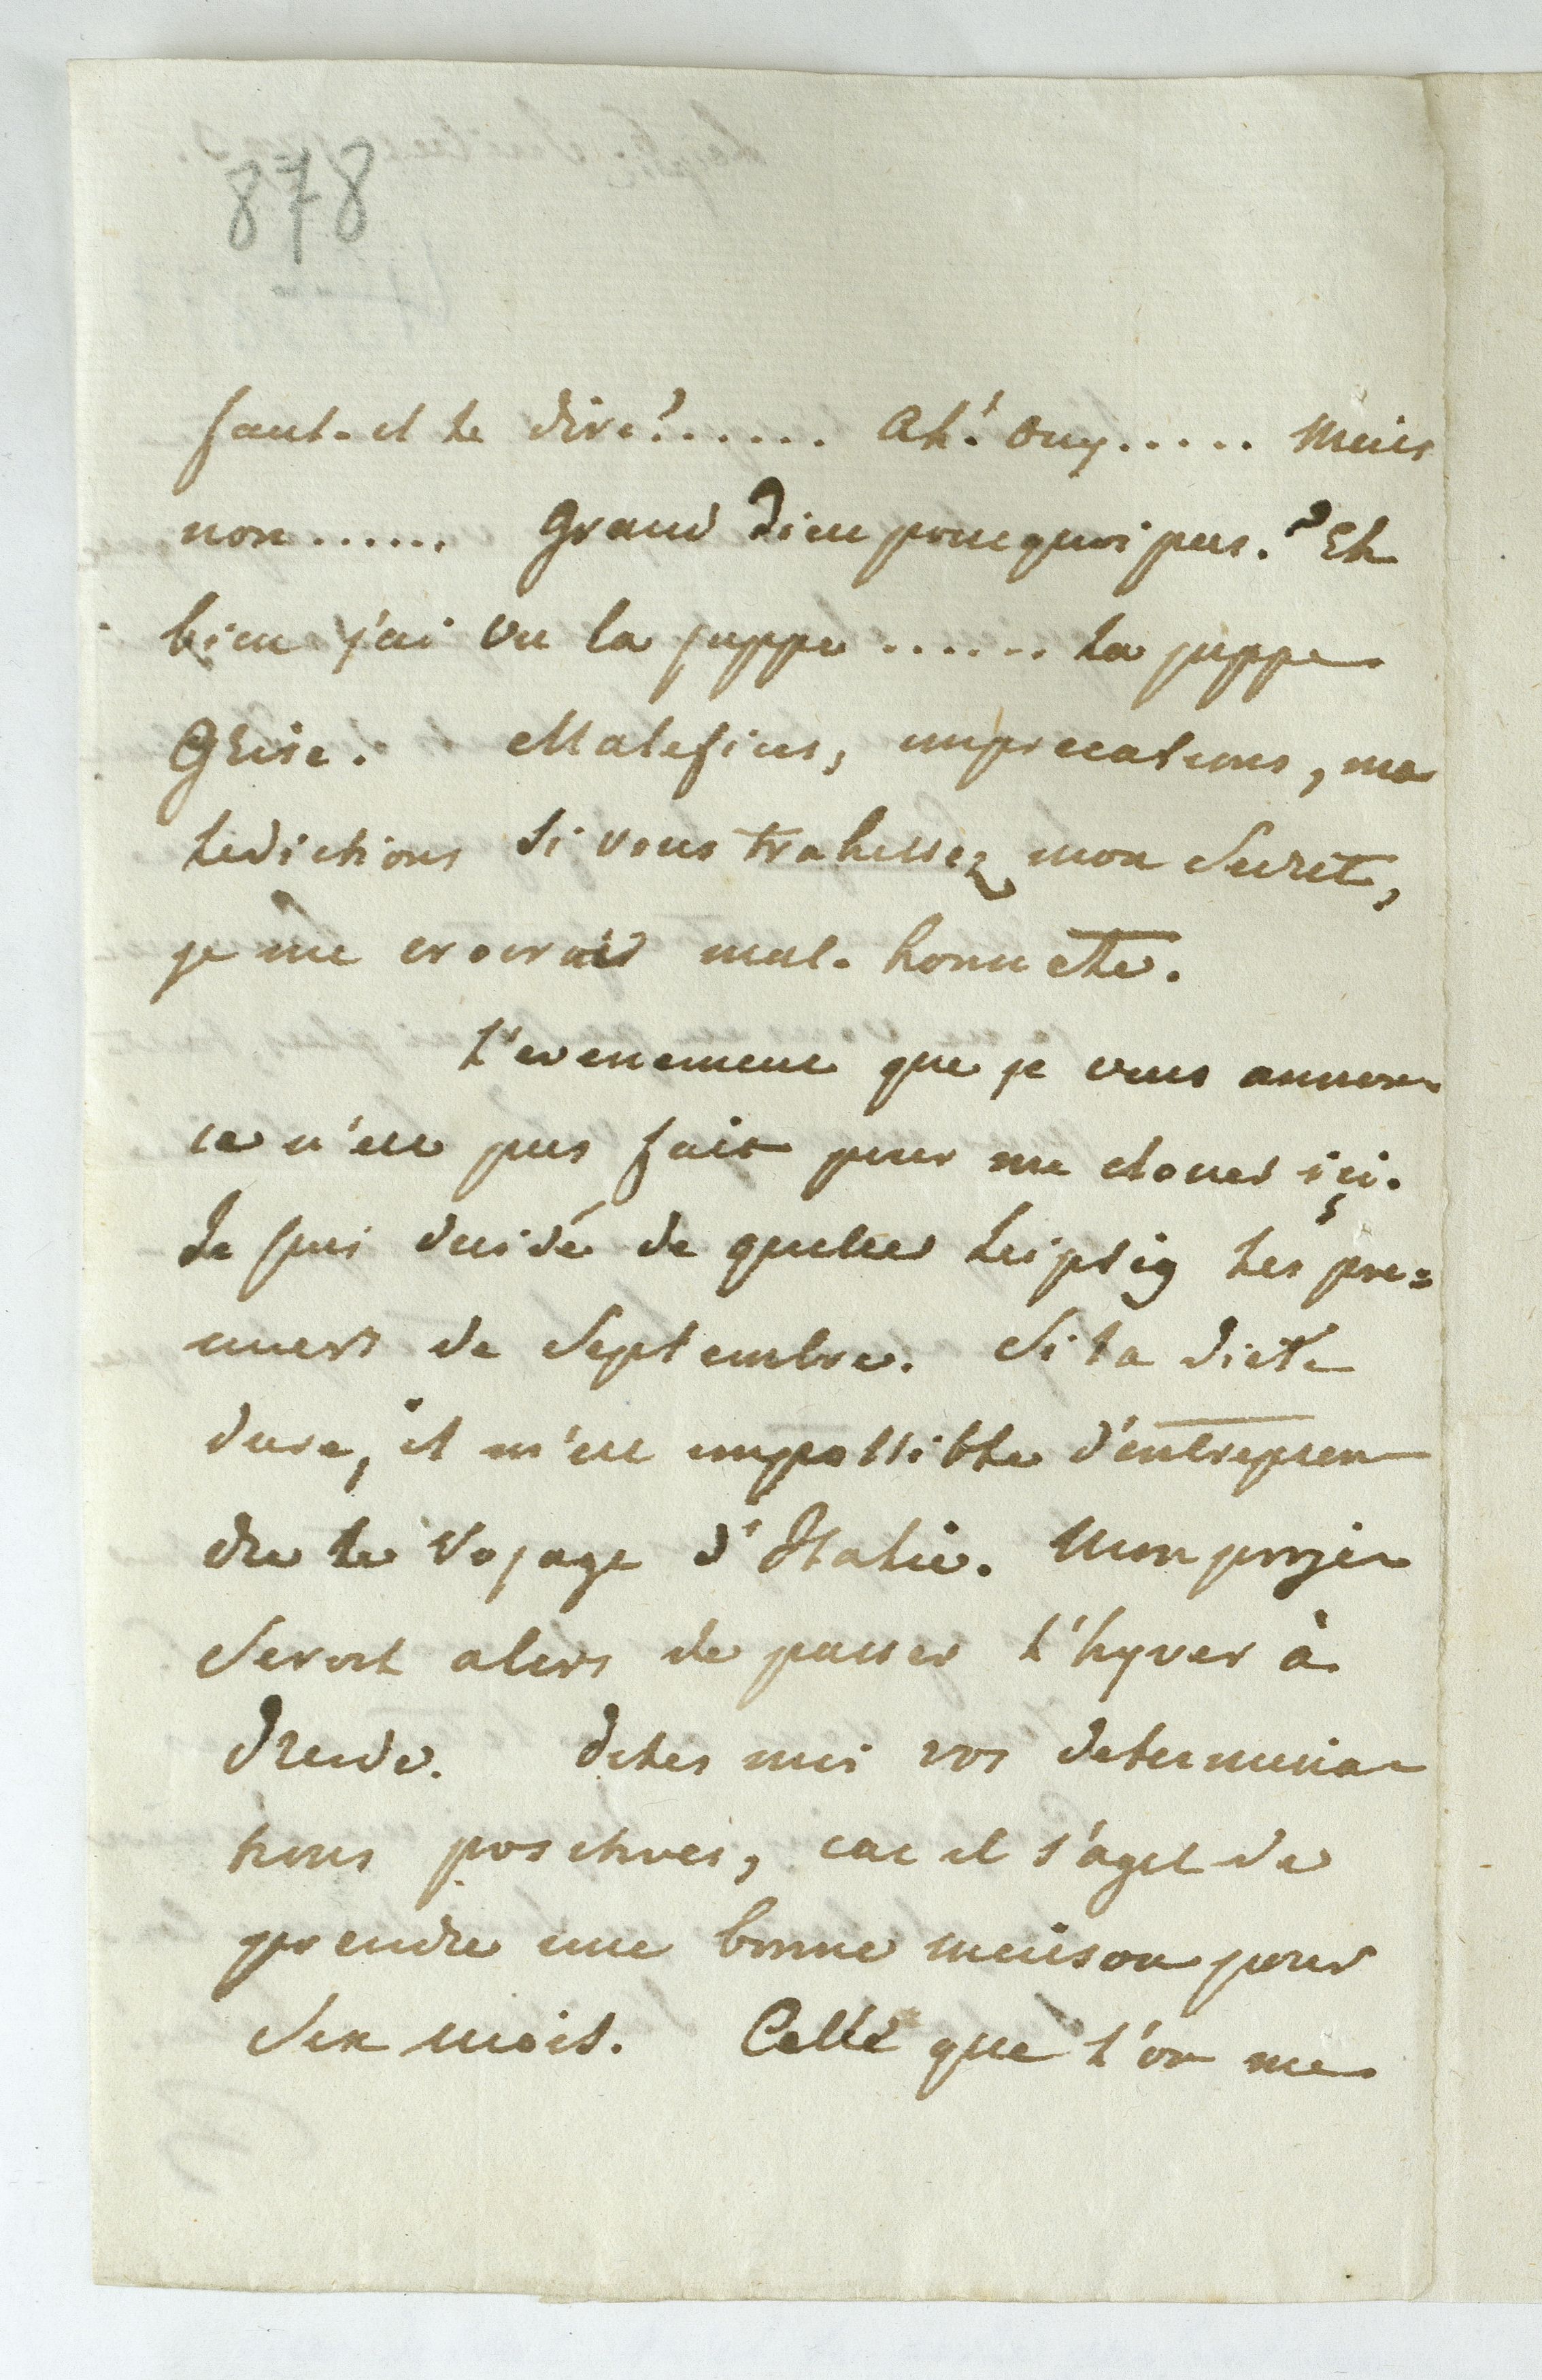 878
faut-il le dire?...... Ah! ouy..... Mais
non...... Grand Dieu pourquoi pas.? Eh
bien j'ai vu la juppe...... la juppe
Grise. Malefices, imprecations, ma
ledictions si vous trahissez mon Secret,
je me croirais mal-honnete.
L'evenement que je vous annon
ce n'est pas fait pour me clouer içi.
Je suis decidé de quitter Leipsig les pre=
miers de Septembre. Si la diete
dure, il m'est impossible d'entrepren
dre le Voyage d'Italie. Mon projet
Seroit alors de passer l'hyver à
Dresde. dites moi vos determina
tions positives, car il s'agit de
prendre une bonne maison pour
Six mois. Celle que l'on me